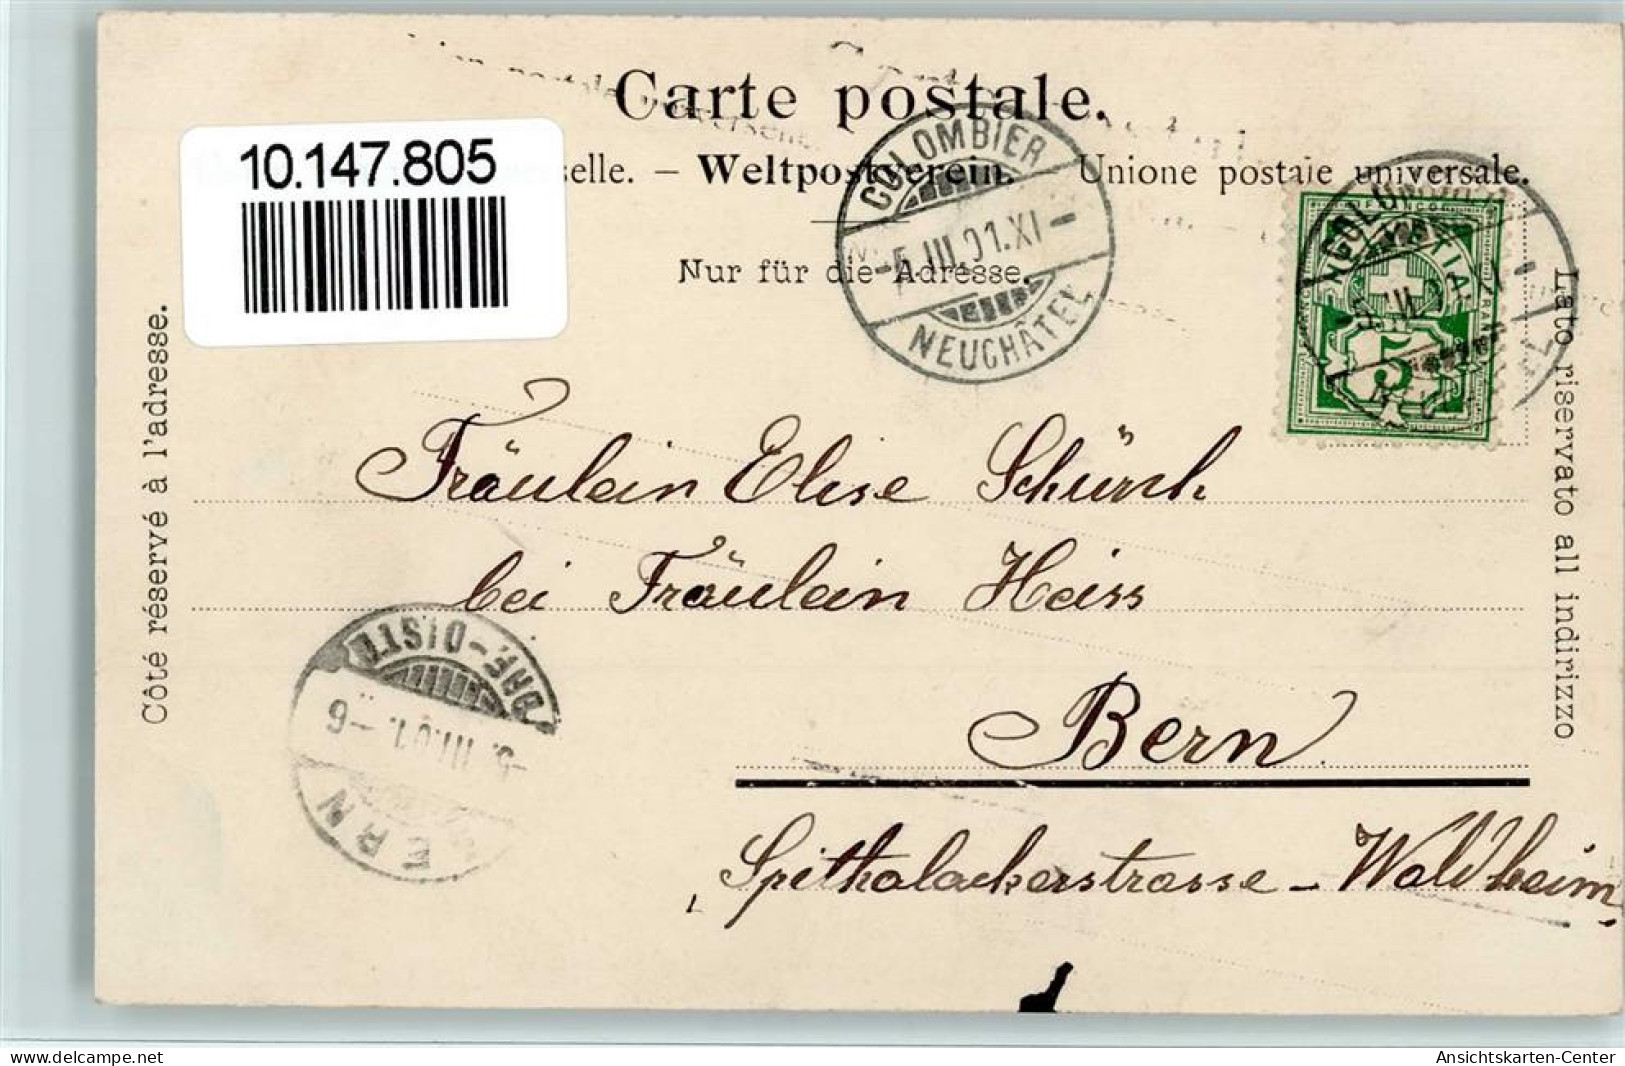 Carte postale.
10.147.805
selle. – Weltpostverein. Unione postale universale.
Nur für die Adresse.
COLOMBIER
-5.III.01.XI-
NEUCHÂTEL
COLOMBIER
5
Côté réservé à l'adresse.
Lato riservato all indirizzo
Fräulein Elise Schürch
bei Fräulein Heiss
Bern
„Spithalackerstrasse – Waldheim"
BRF.-DISTR.
-5.III.01.-6
BERN
www.delcampe.net
Ansichtskarten-Center